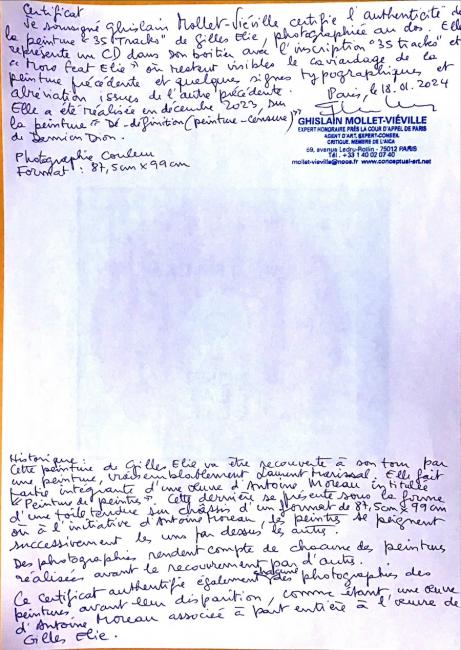 Certificat
Je soussigné Ghislain Mollet-Viéville certifie l'authenticité de
la peinture "35 (Tracks" de Gilles Elie, photographiée au dos. Elle
représente un CD dans son boitier avec l'inscription "35 tracks" et
"Moro feat Elie" où restent visibles le caviardage de la
peinture précédente et quelques signes typographiques, et
abréviation issues de l'autre précédente.
Elle a été réalisée en décembre 2023, sur
la peinture "Dé-définition (peinture-censure)"
de Damien Dion.
Paris, le 18.01.2024
GHISLAIN MOLLET-VIÉVILLE
EXPERT HONORAIRE PRÈS LA COUR D'APPEL DE PARIS
AGENT D'ART, EXPERT-CONSEIL
CRITIQUE, MEMBRE DE L'AICA
59, avenue Ledru-Rollin - 75012 PARIS
Tél. +33 1 40 02 07 40
mollet-vieville@noos.fr www.conceptual-art.net
Photographie Couleur
Format : 87,5cm x 99cm
Historique :
Cette peinture de Gilles Elie va être recouverte à son tour par
une peinture, vraisemblablement Laurent Marissal. Elle fait
partie intégrante d'une œuvre d'Antoine Moreau intitulée
"Peinture de peintres". Cette dernière se présente sous la forme
d'une toile tendue sur châssis d'un format de 87,5cm x 99cm
où à l'initiative d'Antoine Moreau, les peintres se peignent
successivement les uns par dessus les autres.
Des photographies rendent compte de chacune des peintures
réalisées avant le recouvrement par d'autre.
Ce certificat authentifie également chacune des photographies des
peintures avant leur disparition, comme étant une œuvre
d'Antoine Moreau associée à part entière à l'œuvre de
Gilles Elie.